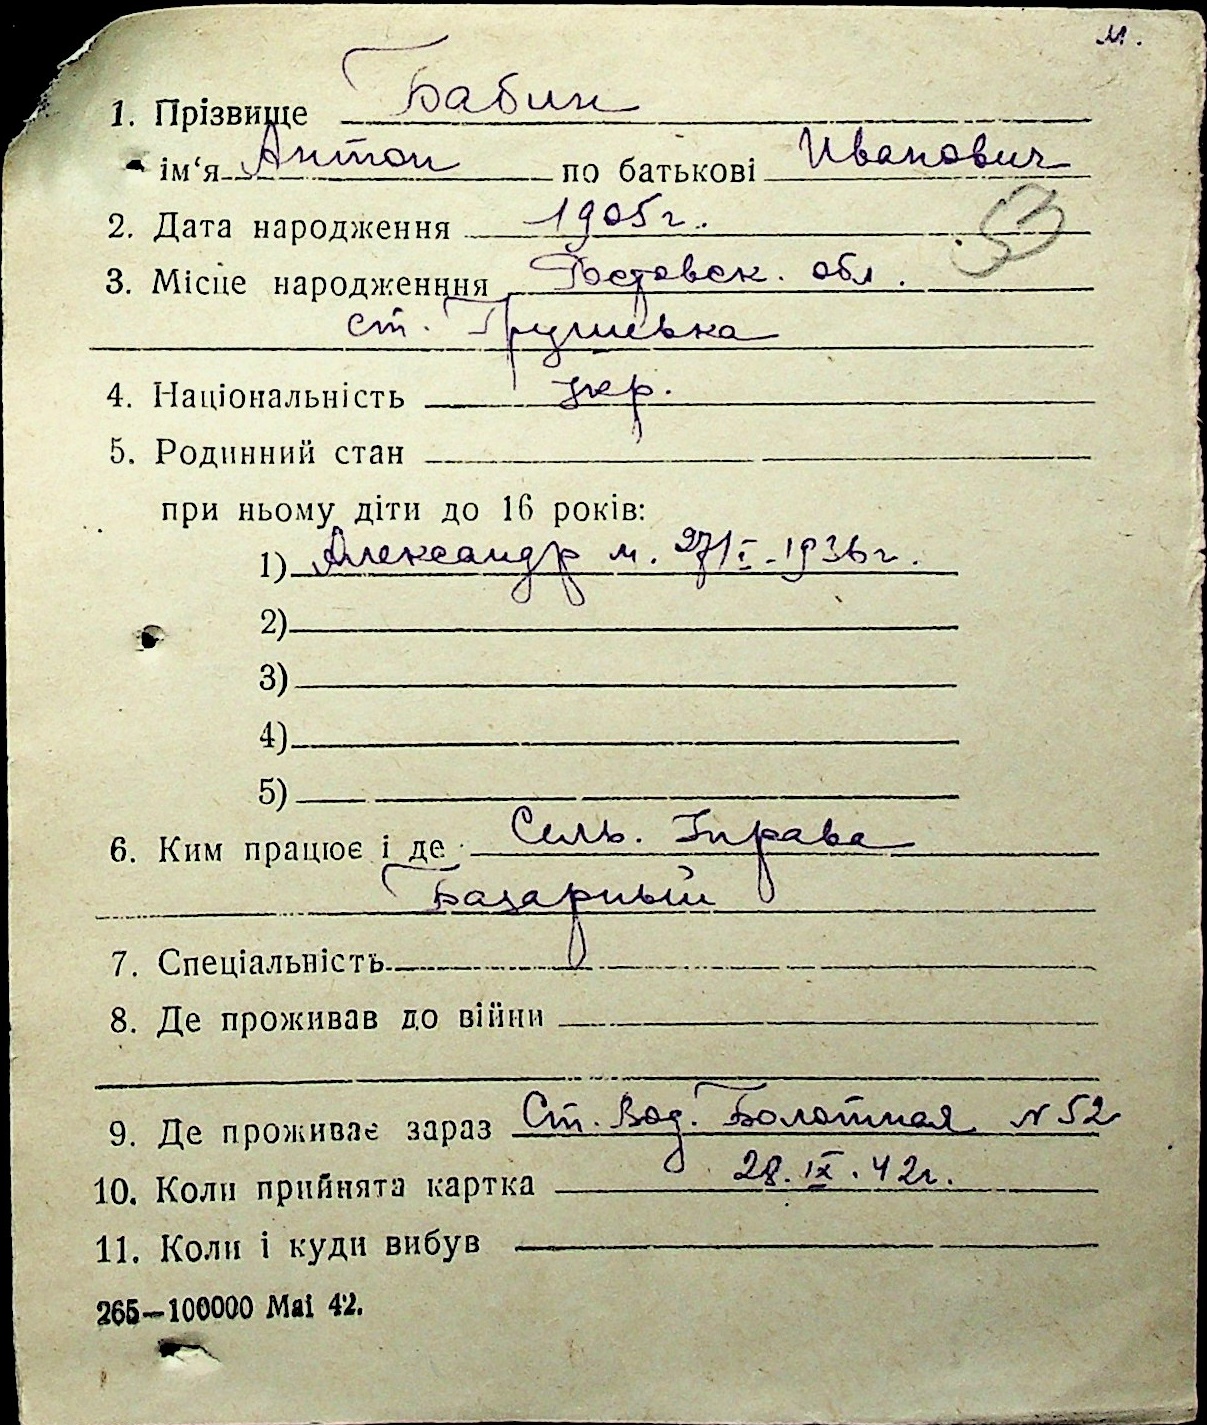 м.
1. Прізвище Бабин
ім‘я Антон по батькові Иванович
2. Дата народження 1905г.
53
3. Місце народженння Ростовск. обл.
ст. Грушевка
4. Національність укр.
5. Родинний стан
при ньому діти до 16 років:
1) Александр м. 27/I-1936г.
2)
3)
4)
5)
6. Ким працює і де Сель. Управа
Базарный
7. Спеціальність
8. Де проживав до війни
9. Де проживає зараз Ст. Вод. Болотная N 52
10. Коли прийнята картка 28.IX.42г.
11. Коли і куди вибув
265—100000 Mai 42.